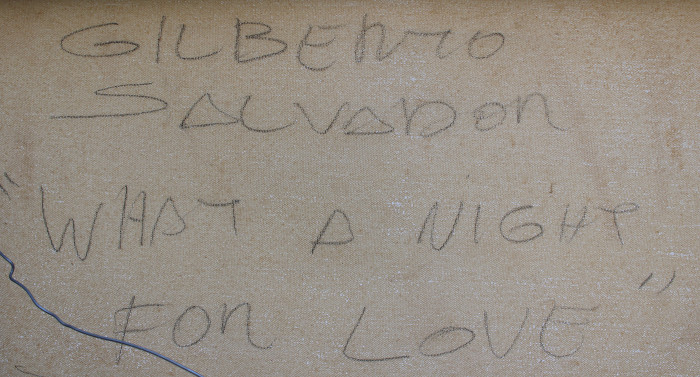 GILBERTO
SALVADOR
"WHAT A NIGHT
FOR LOVE"